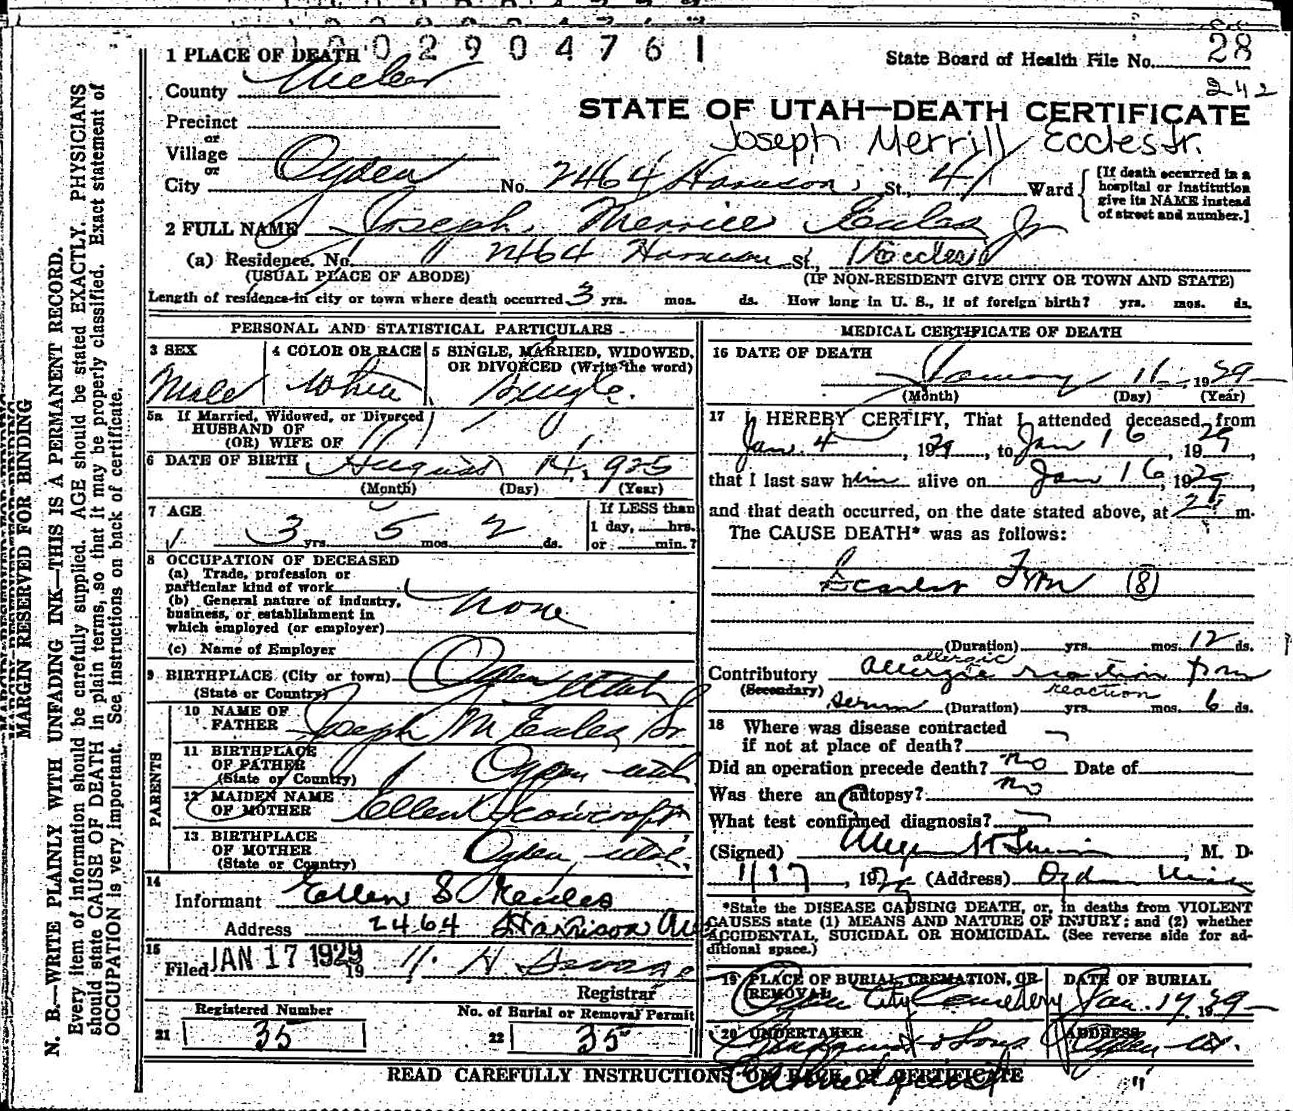 1002904761
1 PLACE OF DEATH
State Board of Health File No. 28
County Weber
242
STATE OF UTAH—DEATH CERTIFICATE
Precinct
or
Joseph Merrill Eccles Jr.
Village
or
City Ogden No. 2464 Harrison St., 4 Ward
[If death occurred in a hospital or institution give its NAME instead of street and number.]
2 FULL NAME Joseph Merrill Eccles Jr
(a) Residence. No. 2464 Harrison St.,
(USUAL PLACE OF ABODE) (IF NON-RESIDENT GIVE CITY OR TOWN AND STATE)
Length of residence in city or town where death occurred 3 yrs. mos. ds. How long in U. S., if of foreign birth? yrs. mos. ds.
PERSONAL AND STATISTICAL PARTICULARS
3 SEX
Male
4 COLOR OR RACE
White
5 SINGLE, MARRIED, WIDOWED,
OR DIVORCED (Write the word)
Single.
5a If Married, Widowed, or Divorced
HUSBAND OF
(OR) WIFE OF
6 DATE OF BIRTH August 14, 1925
(Month) (Day) (Year)
7 AGE
3 yrs. 5 mos. 2 ds.
If LESS than
1 day, hrs.
or min.?
8 OCCUPATION OF DECEASED
(a) Trade, profession or
particular kind of work
(b) General nature of industry,
business, or establishment in
which employed (or employer)
none
(c) Name of Employer
9 BIRTHPLACE (City or town)
(State or Country)
Ogden Utah
PARENTS
10 NAME OF
FATHER
Joseph M Eccles Sr.
11 BIRTHPLACE
OF FATHER
(State or Country)
Ogden Utah
12 MAIDEN NAME
OF MOTHER
Ellen Scowcroft
13 BIRTHPLACE
OF MOTHER
(State or Country)
Ogden, Utah.
14
Informant Ellen S Eccles
Address 2464 Harrison Ave
15
Filed JAN 17 1929 19
H. H Savage
Registrar
Registered Number
21 35
No. of Burial or Removal Permit
22 35
MEDICAL CERTIFICATE OF DEATH
16 DATE OF DEATH
January 16 1929
(Month) (Day) (Year)
17 I HEREBY CERTIFY, That I attended deceased from
Jan. 4, 1929, to Jan 16, 1929,
that I last saw him alive on Jan 16, 1929,
and that death occurred, on the date stated above, at m.
The CAUSE DEATH* was as follows:
Scarlet (8)
(Duration) yrs. mos. 12 ds.
allergic
Contributory allergic reaction from
(Secondary) reaction
serum (Duration) yrs. mos. 6 ds.
18 Where was disease contracted
if not at place of death?
Did an operation precede death? no Date of
Was there an autopsy? no
What test confirmed diagnosis?
(Signed) , M. D.
1/17, 19 (Address) Ogden Utah
*State the DISEASE CAUSING DEATH, or, in deaths from VIOLENT
CAUSES state (1) MEANS AND NATURE OF INJURY; and (2) whether
ACCIDENTAL, SUICIDAL OR HOMICIDAL. (See reverse side for ad-
ditional space.)
19 PLACE OF BURIAL CREMATION, OR
REMOVAL
Ogden City Cemetery
DATE OF BURIAL
Jan. 17 1929
20 UNDERTAKER
& Sons
ADDRESS
Ogden Ut.
READ CAREFULLY INSTRUCTIONS ON BACK OF CERTIFICATE
MARGIN RESERVED FOR BINDING
N. B.—WRITE PLAINLY WITH UNFADING INK—THIS IS A PERMANENT RECORD.
Every item of information should be carefully supplied. AGE should be stated EXACTLY. PHYSICIANS
should state CAUSE OF DEATH in plain terms, so that it may be properly classified. Exact statement of
OCCUPATION is very important. See instructions on back of certificate.